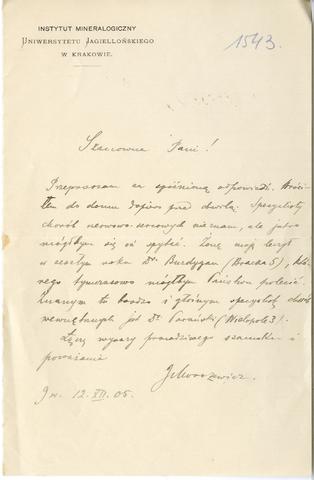 INSTYTUT MINERALOGICZNY
UNIWERSYTETU JAGIELLOŃSKIEGO
W KRAKOWIE.
1543.
Szanowna Pani!
Przepraszam za spóźnioną odpowiedź. Wróci-
łem do domu dopiero przed chwilą. Specyalisty
chorób nerwowo-sercowych nie znam, ale jutro
mógłbym się oń spytać. Żonę moją leczył
w zeszłym roku Dr. Burdygan (Bracka 5), któ-
rego tymczasowo mógłbym Państwu polecić.
Znanym tu bardzo i głośnym specyalistą chorób
wewnętrznych jest Dr. Parański (Wielopole 3).
Łączę wyrazy prawdziwego szacunku i
poważania
JMorozewicz.
12. XII. 05.